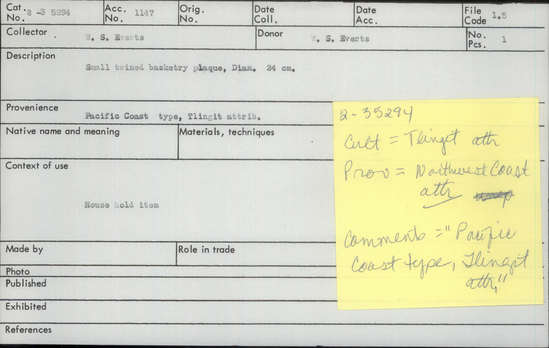 Cat. No. 2 -3 5294 Acc. No. 1147 Orig. No. Date Coll. Date Acc. File Code 1.5
Collector W. S. Everts Donor W. S. Everts No. Pcs. 1
Description
Small twined basketry plaque, Diam. 24 cm.
Provenience
Pacific Coast type, Tlingit attrib.
Native name and meaning Materials, techniques
Context of use
House hold item
Made by Role in trade
Photo
Published
Exhibited
References
2-35294
Cult = Tlingit attr
Prov = Northwest Coast
attr
Comments = "Pacific
Coast type, Tlingit
attr."